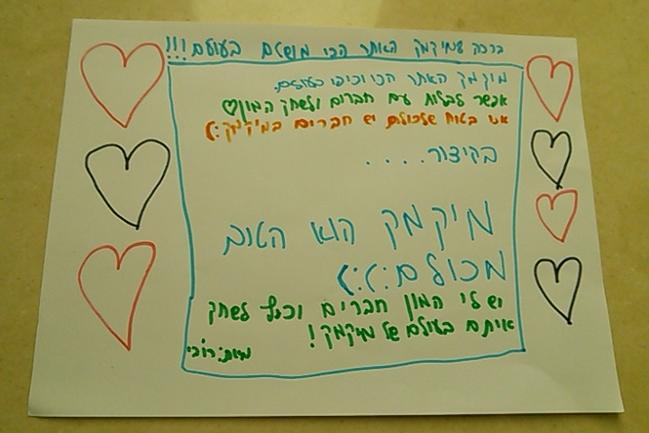 ברכה למיקמק האתר הכי מושלם בעולם!!!
מיקמק האתר הכי כיפי בעולם.
אפשר לבלות עם חברים ולשחק המון♡
אני בטוח שלכולם יש חברים במיקמק:)
בקיצור....
מיקמק הוא הטוב
מכולם:):)
יש לי המון חברים וכיף לשחק
איתם בעולם של מיקמק!
מאת: